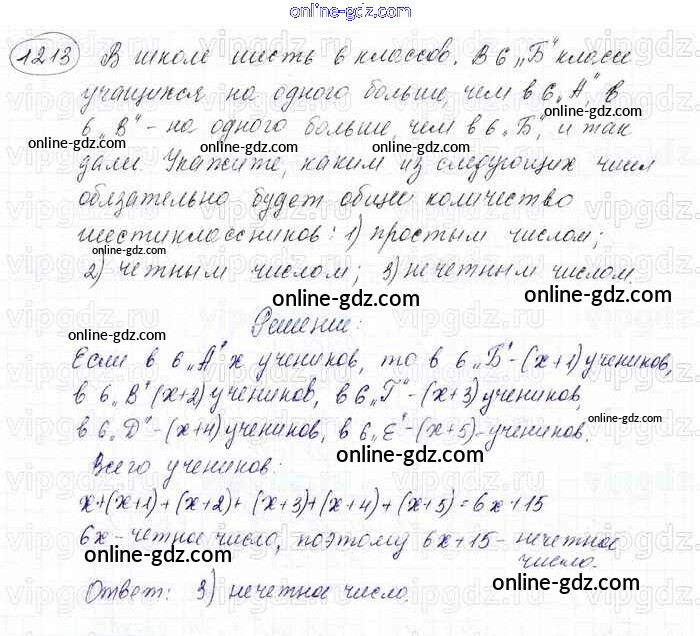 online-gdz.com
1213 В школе шесть 6 классов. В 6 „Б" классе
учащихся на одного больше, чем в 6 „А", в
6 „В" - на одного больше, чем в 6 „Б", и так
online-gdz.com online-gdz.com online-gdz.com
дали. Укажите, каким из следующих чисел
обязательно будет общее количество
шестиклассников: 1) простым числом;
online-gdz.com
2) четным числом; 3) нечетным числом.
online-gdz.com online-gdz.com
Решение:
online-gdz.com
Если в 6 „А" x учеников, то в 6 „Б" - (x+1) учеников,
в 6 „В" (x+2) учеников, в 6 „Г" - (x+3) учеников,
online-gdz.com
в 6 „Д" - (x+4) учеников, в 6 „Е" - (x+5) - учеников.
online-gdz.com
Всего учеников:
x+(x+1)+(x+2)+(x+3)+(x+4)+(x+5)=6x+15
6x - четное число, поэтому 6x+15 - нечетное
число.
online-gdz.com online-gdz.com online-gdz.com
Ответ: 3) нечетное число.
online-gdz.com